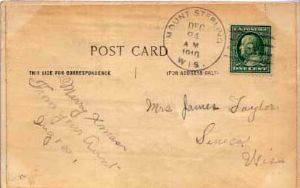 MOUNT STERLING
DEC
24
A M
1910
WIS.
U.S. POSTAGE
ONE CENT
POST CARD
THIS SIDE FOR CORRESPONDENCE
(FOR ADDRESS ONLY)
Merry Xmas
From your Aunt
Mrs James Taylor
Seneca
Wis